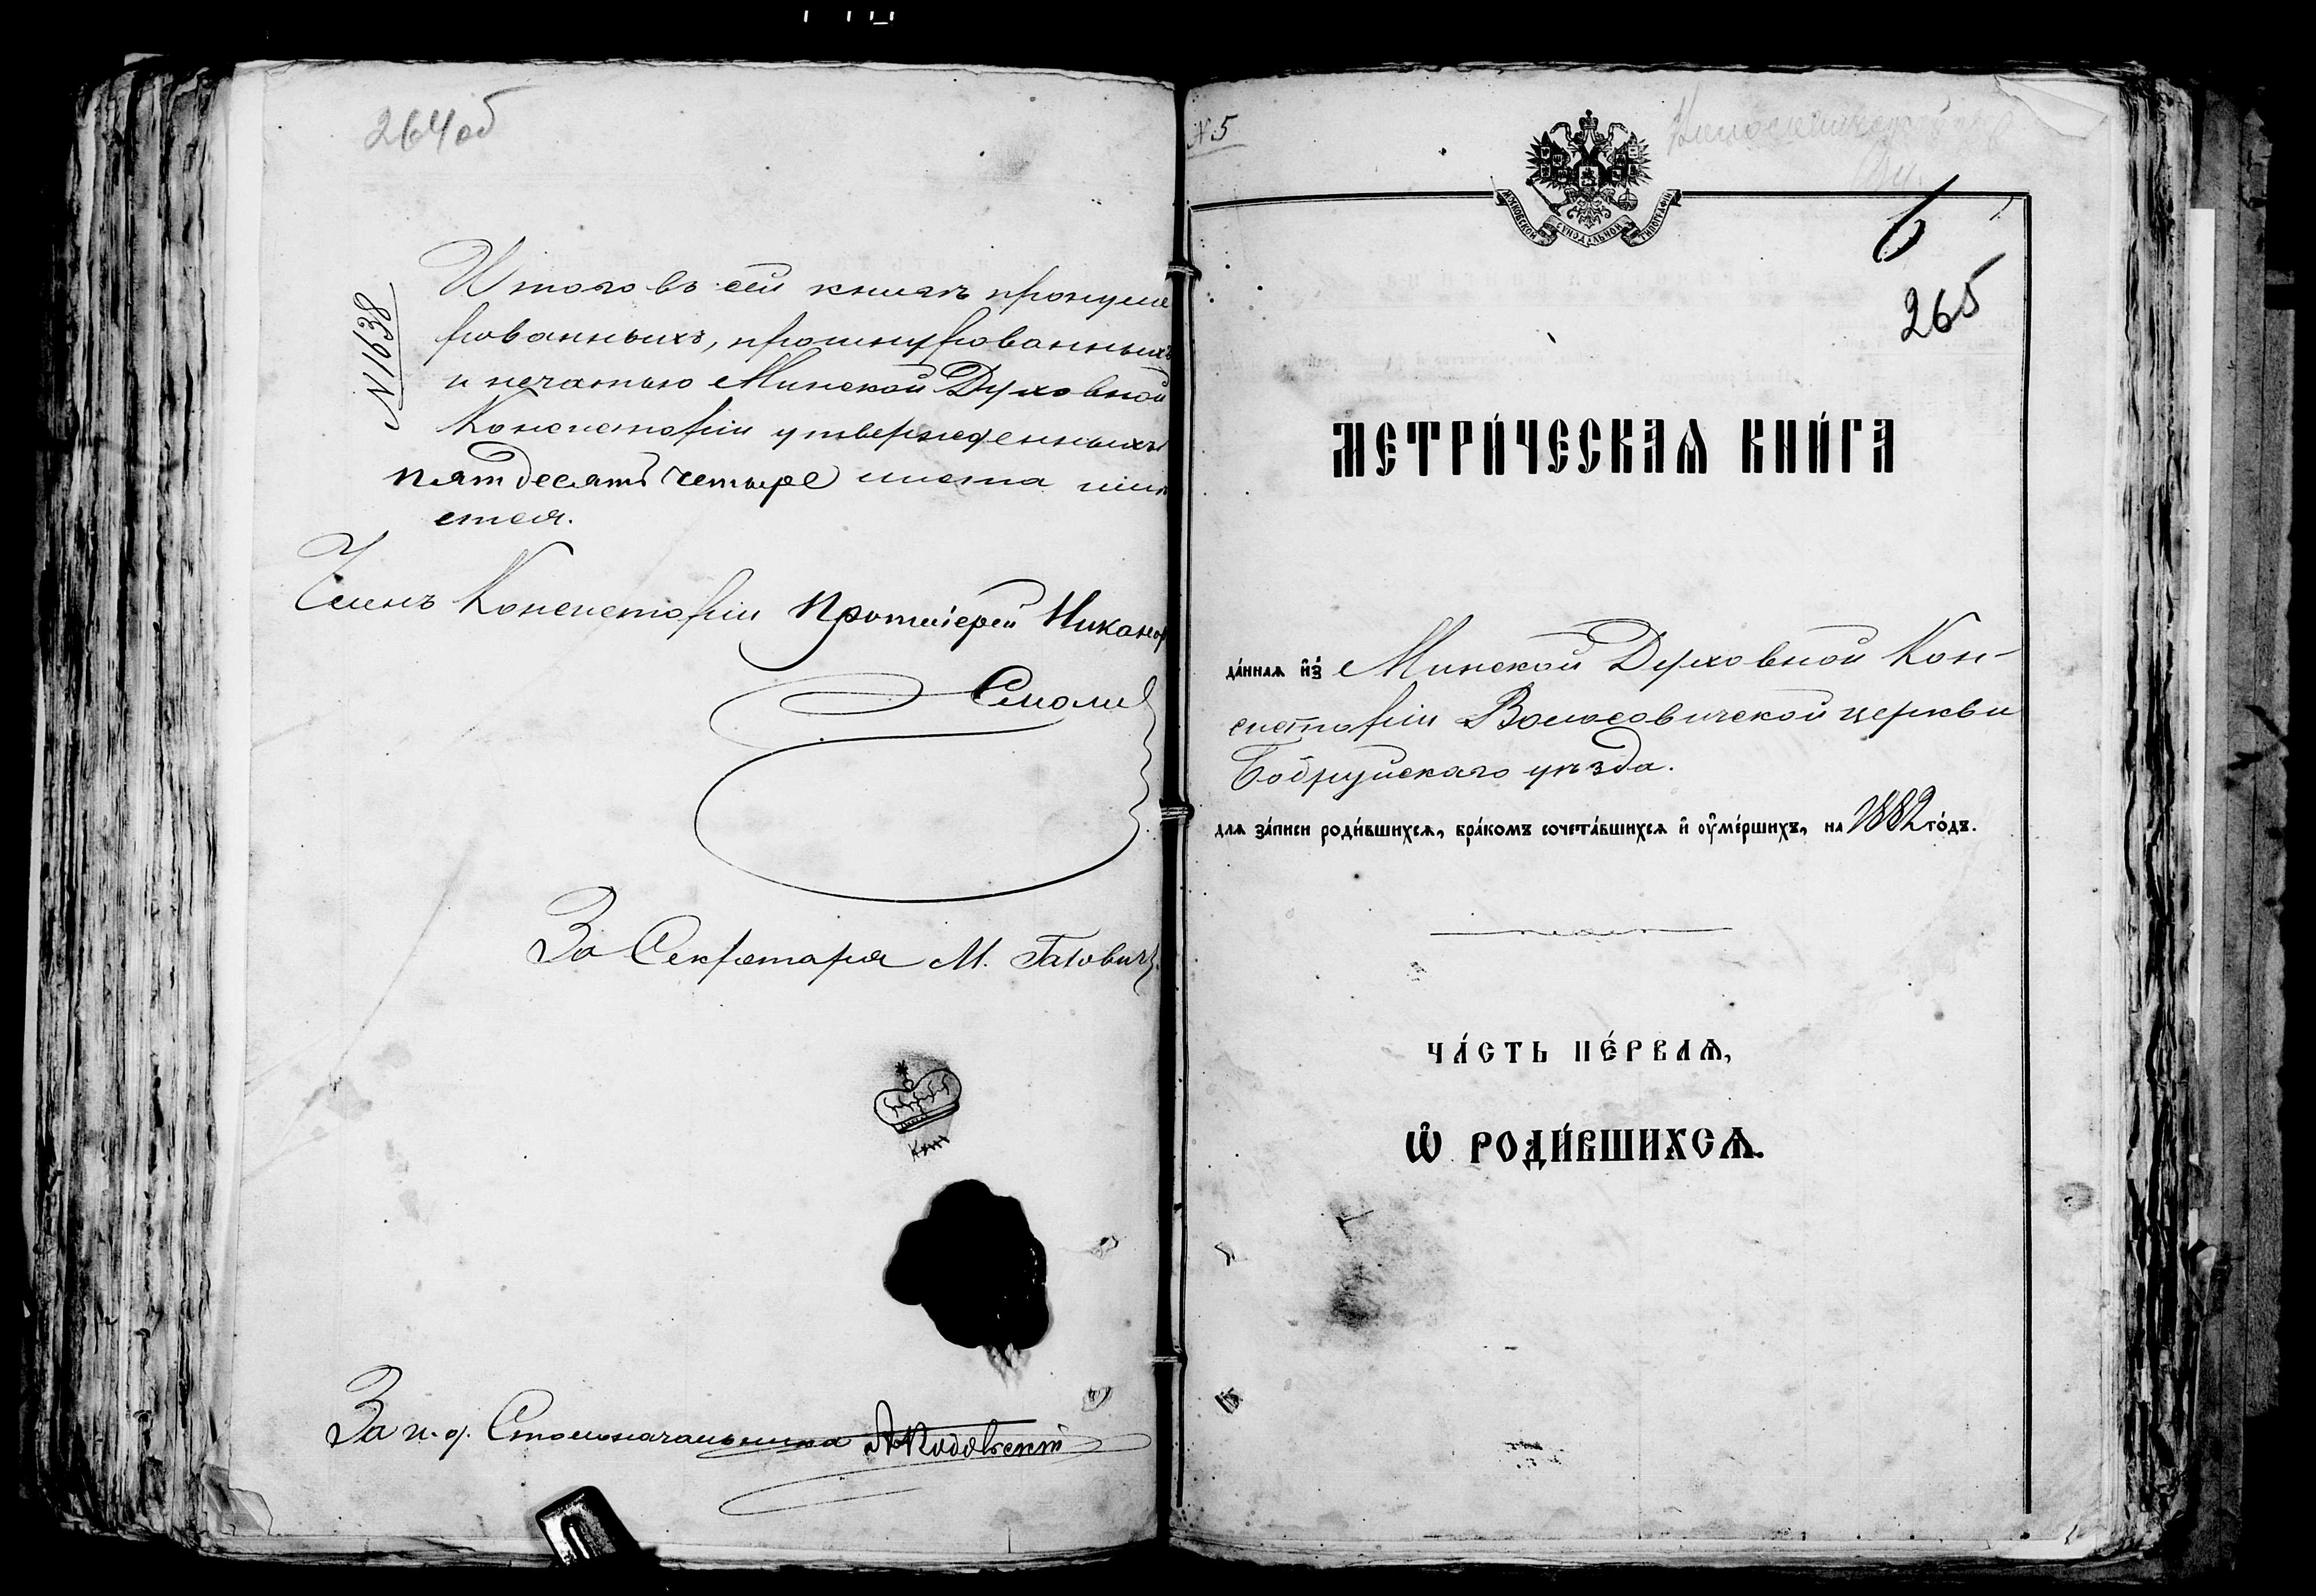 264об
N 1638
Итого въ сей книгѣ прономе
рованныхъ, прошнурованныхъ
и печатью Минской Духовной
Консисторіи утвержденныхъ
пятдесятъ четыре листа имѣ
ется.
Членъ Консисторіи Протоіерей Никанор
Смолич
За Секретаря М.
За и. д. Столоначальника
N 5
МОСКОВСКОЙ СУНОДАЛЬНОЙ ТИПОГРАФІИ
6
265
МЕТРИ́ЧЕСКАѦ КНИ́ГА
да́ннаѧ и҆з̾ Минской Духовной Кон-
систоріи Волосовичской церкви
Бобруйскаго уѣзда.
для за́писи роди́вшихсѧ, бра́комъ сочета́вшихсѧ и҆ оу҆ме́ршихъ, на 1882 го́дъ.
ЧА́СТЬ ПЕ́РВАѦ,
Ѡ҆ РОДИ́ВШИХСѦ.